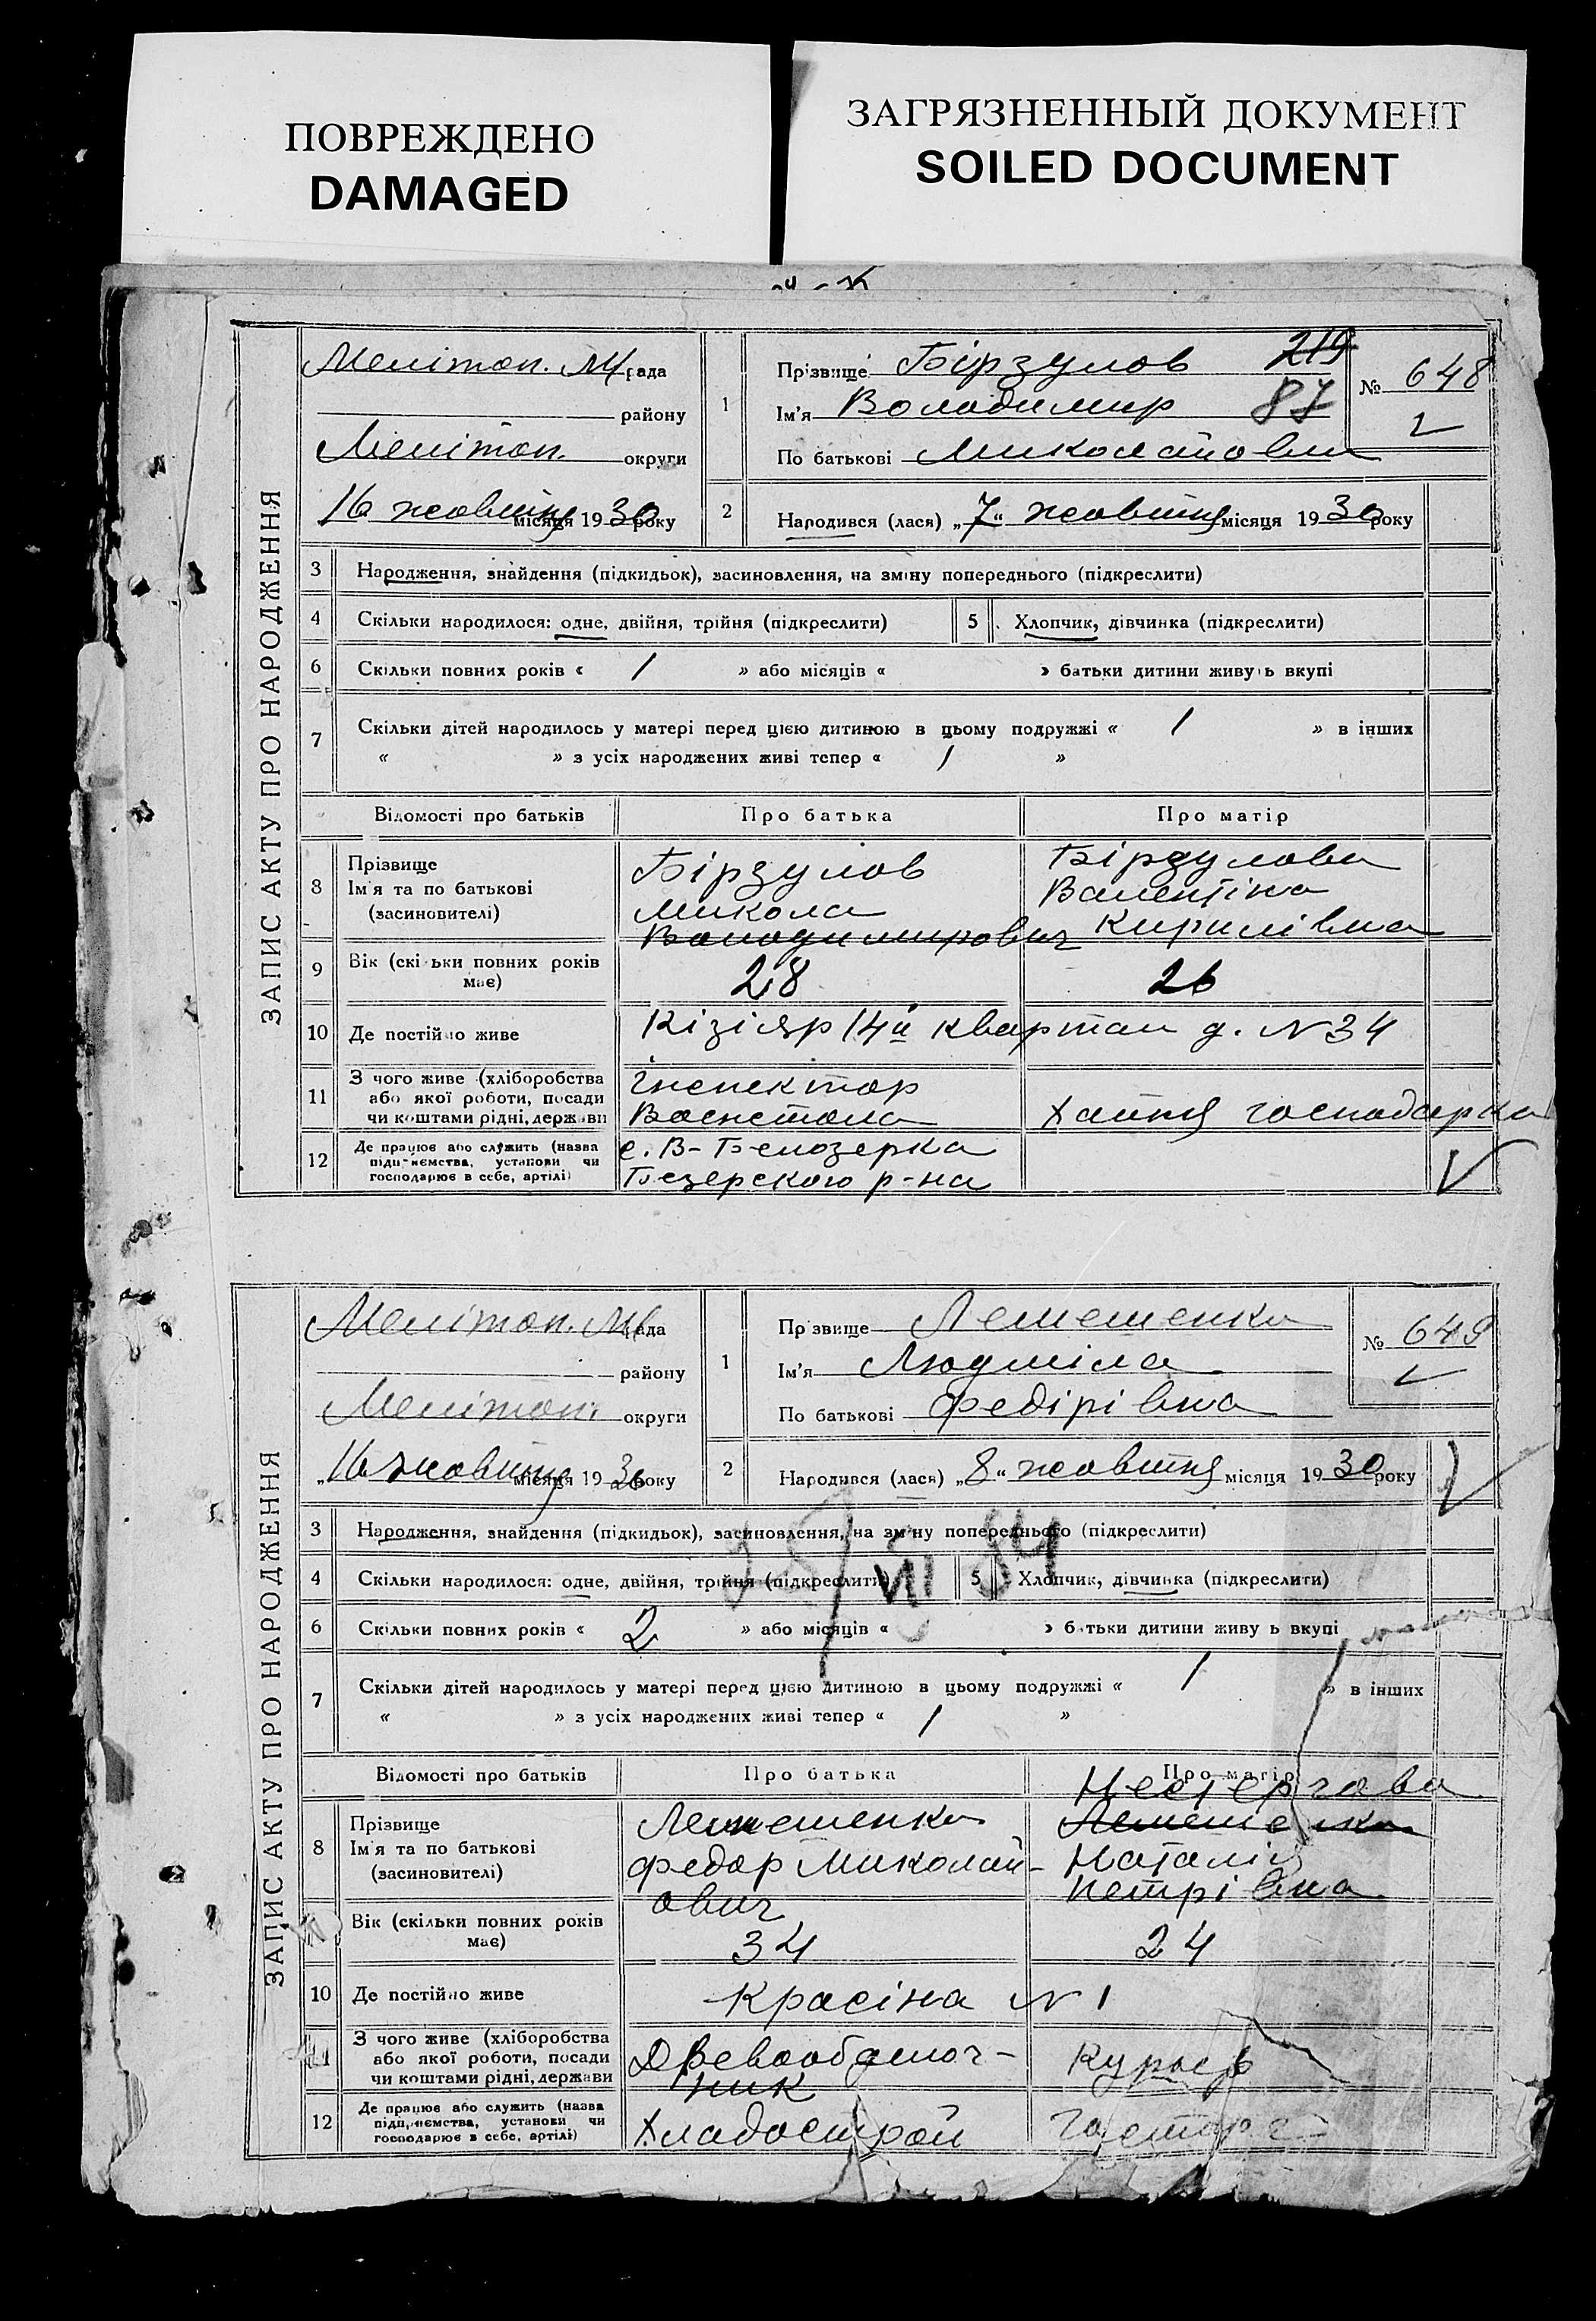 ПОВРЕЖДЕНО
DAMAGED
ЗАГРЯЗНЕННЫЙ ДОКУМЕНТ
SOILED DOCUMENT
ЗАПИС АКТУ ПРО НАРОДЖЕННЯ
Меліmоп. М рада
району
Меліmоп. округи
16 жовтня місяця 1930 року
1
Прізвище Бірзулов 219
Ім'я Володимир 87
По батькові Миколайови
№ 648
2
Народився (лася) „7“ жовтня місяця 1930 року
3 Народження, знайдення (підкидьок), засиновлення, на зміну попереднього (підкреслити)
4 Скільки народилося: одне, двійня, трійня (підкреслити) 5 Хлопчик, дівчинка (підкреслити)
6 Скільки повних років « 1 » або місяців « » батьки дитини живуть вкупі
7 Скільки дітей народилось у матері перед цією дитиною в цьому подружжі « 1 » в інших
« » з усіх народжених живі тепер « 1 »
Відомості про батьків Про батька Про матір
8 Прізвище
Ім'я та по батькові
(засиновителі)
Бірзулов
Микола
Володимирович
Бірзулова
Валентіна
Кирилівна
9 Вік (скільки повних років має) 28 26
10 Де постійно живе Кізіяр 14й квартал д. N 34
11 З чого живе (хліборобства
або якої роботи, посади
чи коштами рідні, держави
Інспектор
Воєнстола
Хатня господарка
12 Де працює або служить (назва
підприємства, установи чи
господарює в себе, артілі)
с. В-Белозерка
Безерского р-на
ЗАПИС АКТУ ПРО НАРОДЖЕННЯ
Меліmоп. М рада
району
Меліmоп. округи
„16 жовтня місяця 1930 року
1
Прізвище Лемешенко
Ім'я Людміла
По батькові Федірівна
№ 649
2
Народився (лася) „8“ жовтня місяця 1930 року
3 Народження, знайдення (підкидьок), засиновлення, на зміну попереднього (підкреслити)
4 Скільки народилося: одне, двійня, трійня (підкреслити) 5 Хлопчик, дівчинка (підкреслити)
VII 84
6 Скільки повних років « 2 » або місяців « » батьки дитини живуть вкупі
7 Скільки дітей народилось у матері перед цією дитиною в цьому подружжі « 1 » в інших
« » з усіх народжених живі тепер « 1 »
Відомості про батьків Про батька Про матір
8 Прізвище
Ім'я та по батькові
(засиновителі)
Лемешенко
Федор Миколай-
ович
Лемешенко
Наталія
Петрівна
9 Вік (скільки повних років має) 34 24
10 Де постійно живе Красіна N 1
11 З чого живе (хліборобства
або якої роботи, посади
чи коштами рідні, держави
Древообделоч-
ник
Курьер
12 Де працює або служить (назва
підприємства, установи чи
господарює в себе, артілі)
Хладострой